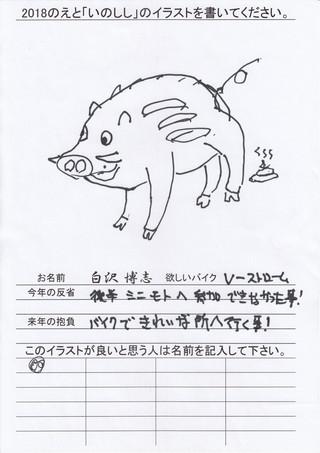 2018のえと「いのしし」のイラストを書いてください。
お名前 白沢 博志 欲しいバイク Vーストローム
今年の反省 後半 ミニモトへ 参加 できなかった事!
来年の抱負 バイクできれいな所へ行く事!
このイラストが良いと思う人は名前を記入して下さい。